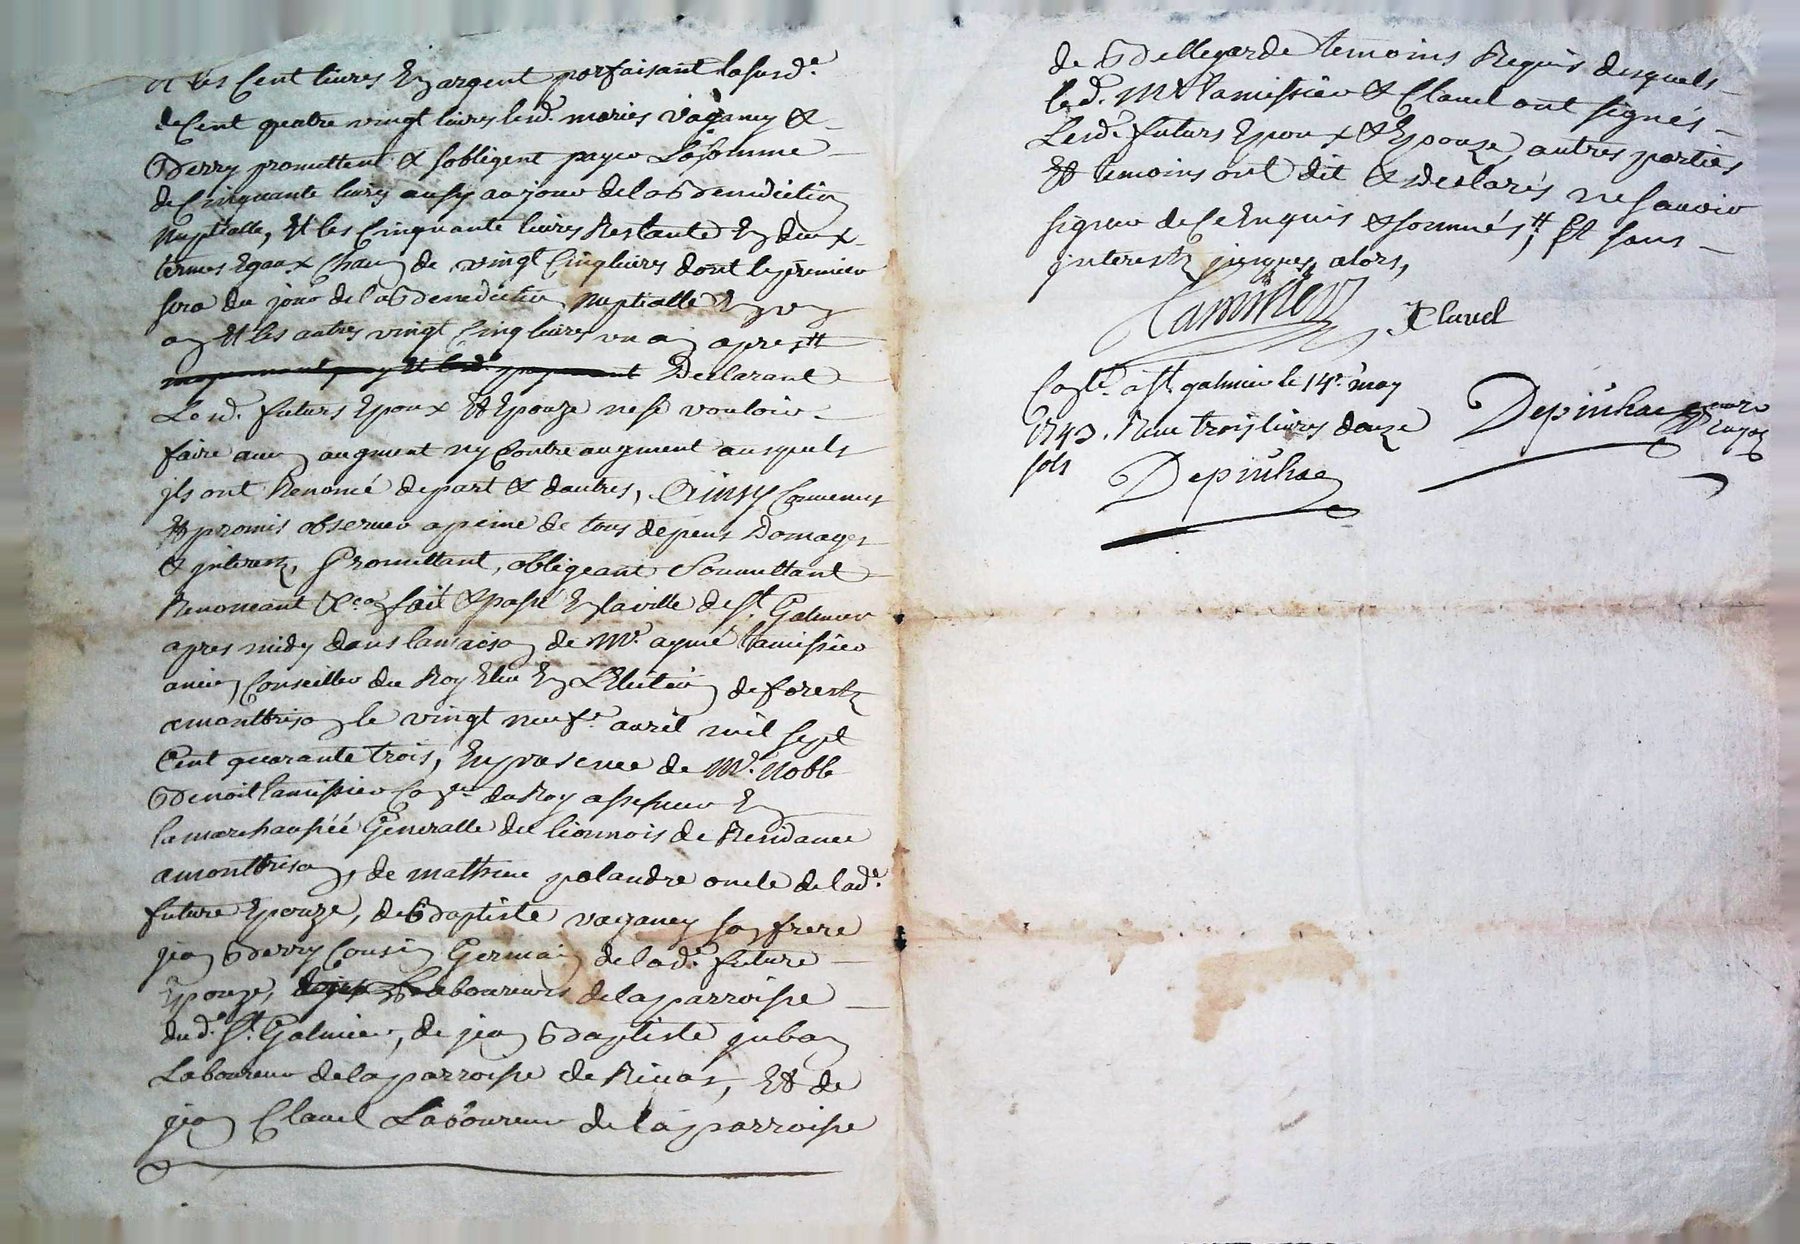 et les Cent livres En argent parfaisant lasusd.e
de Cent quatre vingt livres lesd. maries vaganey &
Berry promettent & sobligent payer La somme
de Cinquante livres aussy au jour de la Benediction
Nuptialle, Et les Cinquante livres Restante En deux
termes Egaux Chacun de vingt Cinq livres dont le premier
sera du jour de la Benediction Nuptialle En un
an Et les autres vingt Cinq livres un an apres tt
Declarant
Lesd. futurs Epoux Et Epouze ne se vouloir
faire aucun augment ny Contre augment ausquels
ils ont Renoncé de part & dautres, Ainsy Convenus
Et promis observer a peine de tous depens Domages
& interestz, Promettant, obligeant Soumettant
Renonceant &ca fait & passé En la ville de St. Galmier
apres midy dans la maison de Mr. aymé Lamissier
ancien Conseiller du Roy Elu En L'Election de forestz
a montbrison le vingt neufe. avril mil sept
Cent quarante trois, En presence de Mr. Noble
Benoit Lamissier Coner. du Roy assesseur En
la marechaussée Generalle du lionnois de Residance
a montbrison, de mathieu polandre oncle de lad.e
future Epouze, de Baptiste vaganey son frere
jean Berry Cousin Germain de lad. future
Epouze, Laboureurs de la parroisse
dud. St. Galmier, de jean Baptiste juban
Laboureur de la parroisse de Rivas, Et de
jean Clavel Laboureur de la parroisse
de Bellegarde temoins Requis desquels
led. Mr Lamissier & Clavel ont signés
Lesd. futurs Epoux & Epouze, autres parties
Et temoins ont dit & declarés ne savoir
signer de Ce Enquis & sommés, tt Et sans
interestz jusques alors,
Lamissier J Clavel
Conlé. a St. galmier le 14e. may
1743. Reçu trois livres douze
sols
Depinhac
Depinhac nore Royal